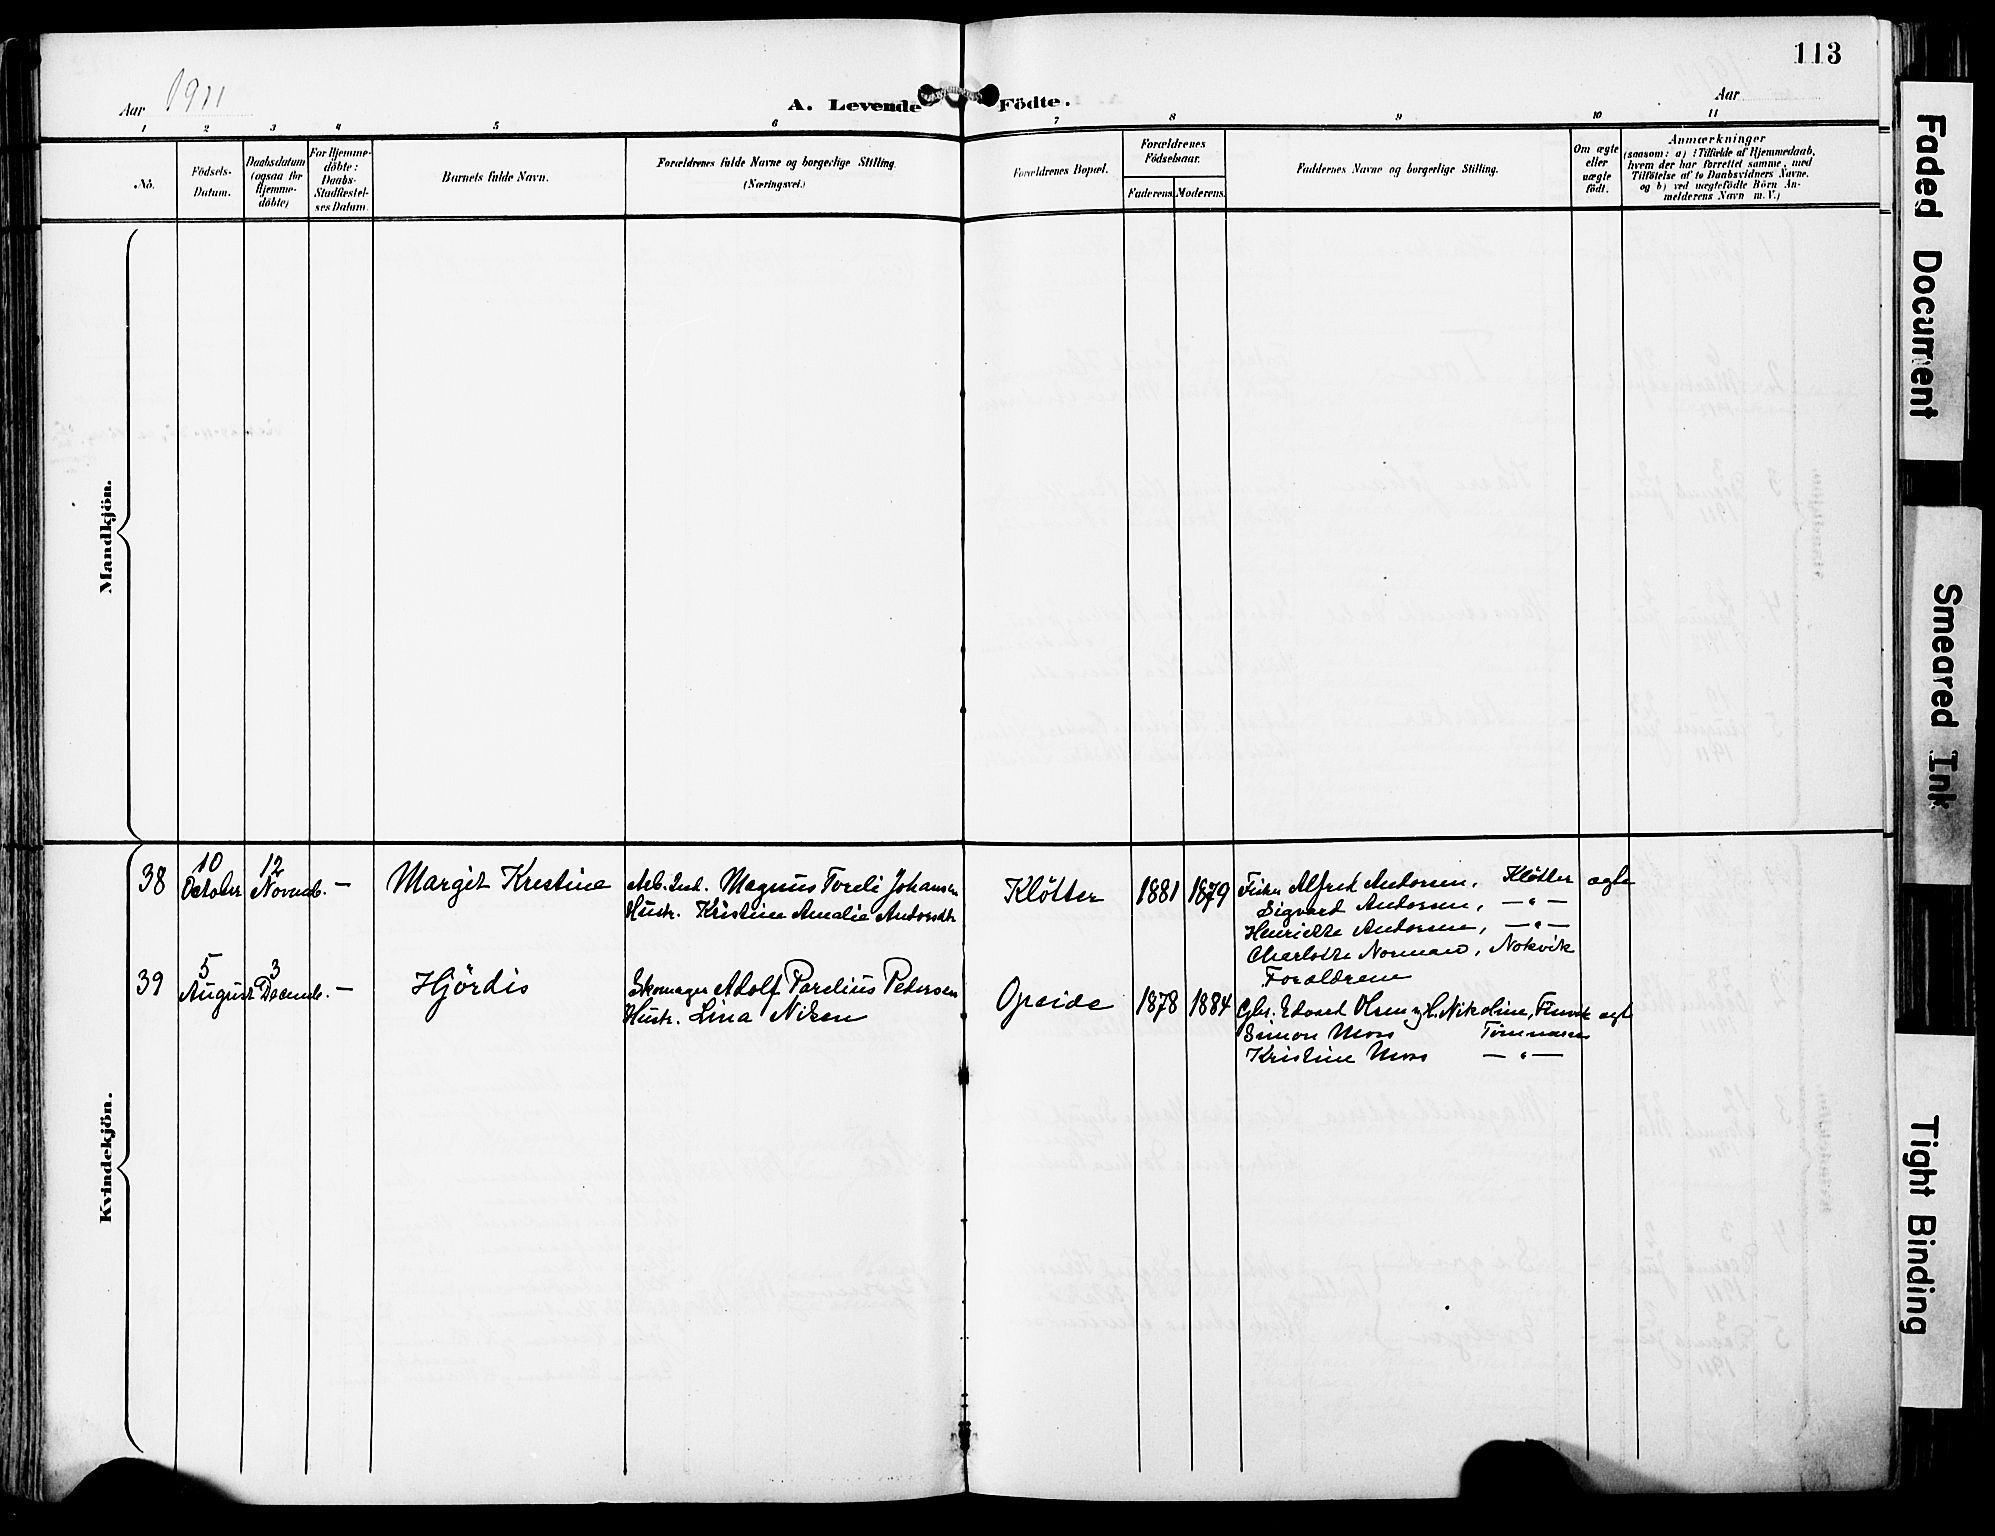 113
Aar 1911
A. Levende Födte.
Aar
1 2 3 4 5 6 7 8 9 10 11
No.
Födsels-
Datum.
Daabsdatum
(ogsaa for
Hjemme-
döbte)
For Hjemme-
döbte:
Daabs-
Stadfæstel-
ses Datum.
Barnets fulde Navn.
Forældrenes fulde Navne og borgerlige Stilling.
(Næringsvei.)
Forældrenes Bopæl.
Forældrenes
Födselsaar.
Faderens. Moderens.
Faddernes Navne og borgerlige Stilling.
Om ægte
eller
uægte
födt.
Anmærkninger
(saasom: a) i Tilfælde af Hjemmedaab,
hvem der har forrettet samme, med
Tilföielse af to Daabsvidners Navne.
og b) ved uægtefödte Börn An-
melderens Navn m. V.)
Mandkjön.
Kvindekjön.
38
10
October
12
Novemb.
—
Margit Kristine
Arb. Ind. Magnus Toreli Johansen
Hustr. Kristine Amalie Andersdtr
Kløtter
1881
1879
Fisker Alfred Andersen, Kløtter
Sigvard Andersen, — " —
Henriette Andersen, — " —
Charlotte Norman, Nokvik
Forældrene
ægte
39
5
August
3
Decemb.
—
Hjördis
Skomager Adolf Parelius Pedersen
Hustr. Lina Nilsen
Opeide
1878
1884
Gbr. Edvard Olsen og H. Nikoline,
Simon Moss
Kristine Moss — " —
ægt
Faded Document
Smeared Ink
Tight Binding